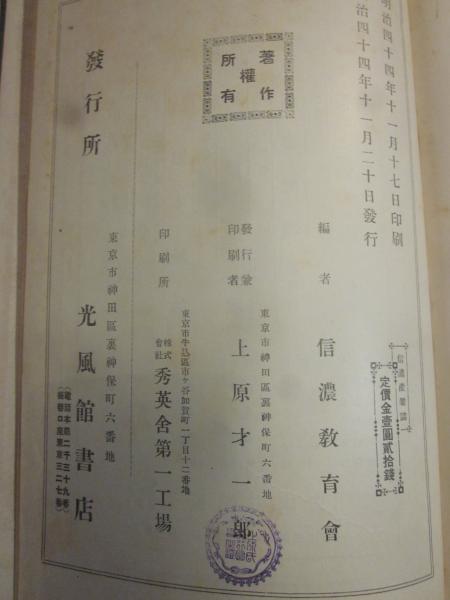 明治四十四年十一月十七日印刷
治四十四年十一月二十日發行
著作權所有
定價金壹圓貳拾錢
編者
信濃教育會
東京市神田區裏神保町六番地
發行兼印刷者
上原才一郎
東京市牛込區市ヶ谷加賀町一丁目十二番地
印刷所
株式會社
秀英舍第一工場
東京市神田區裏神保町六番地
發行所
光風館書店
(電話本局二千三十九番
振替口座東京三二七番)